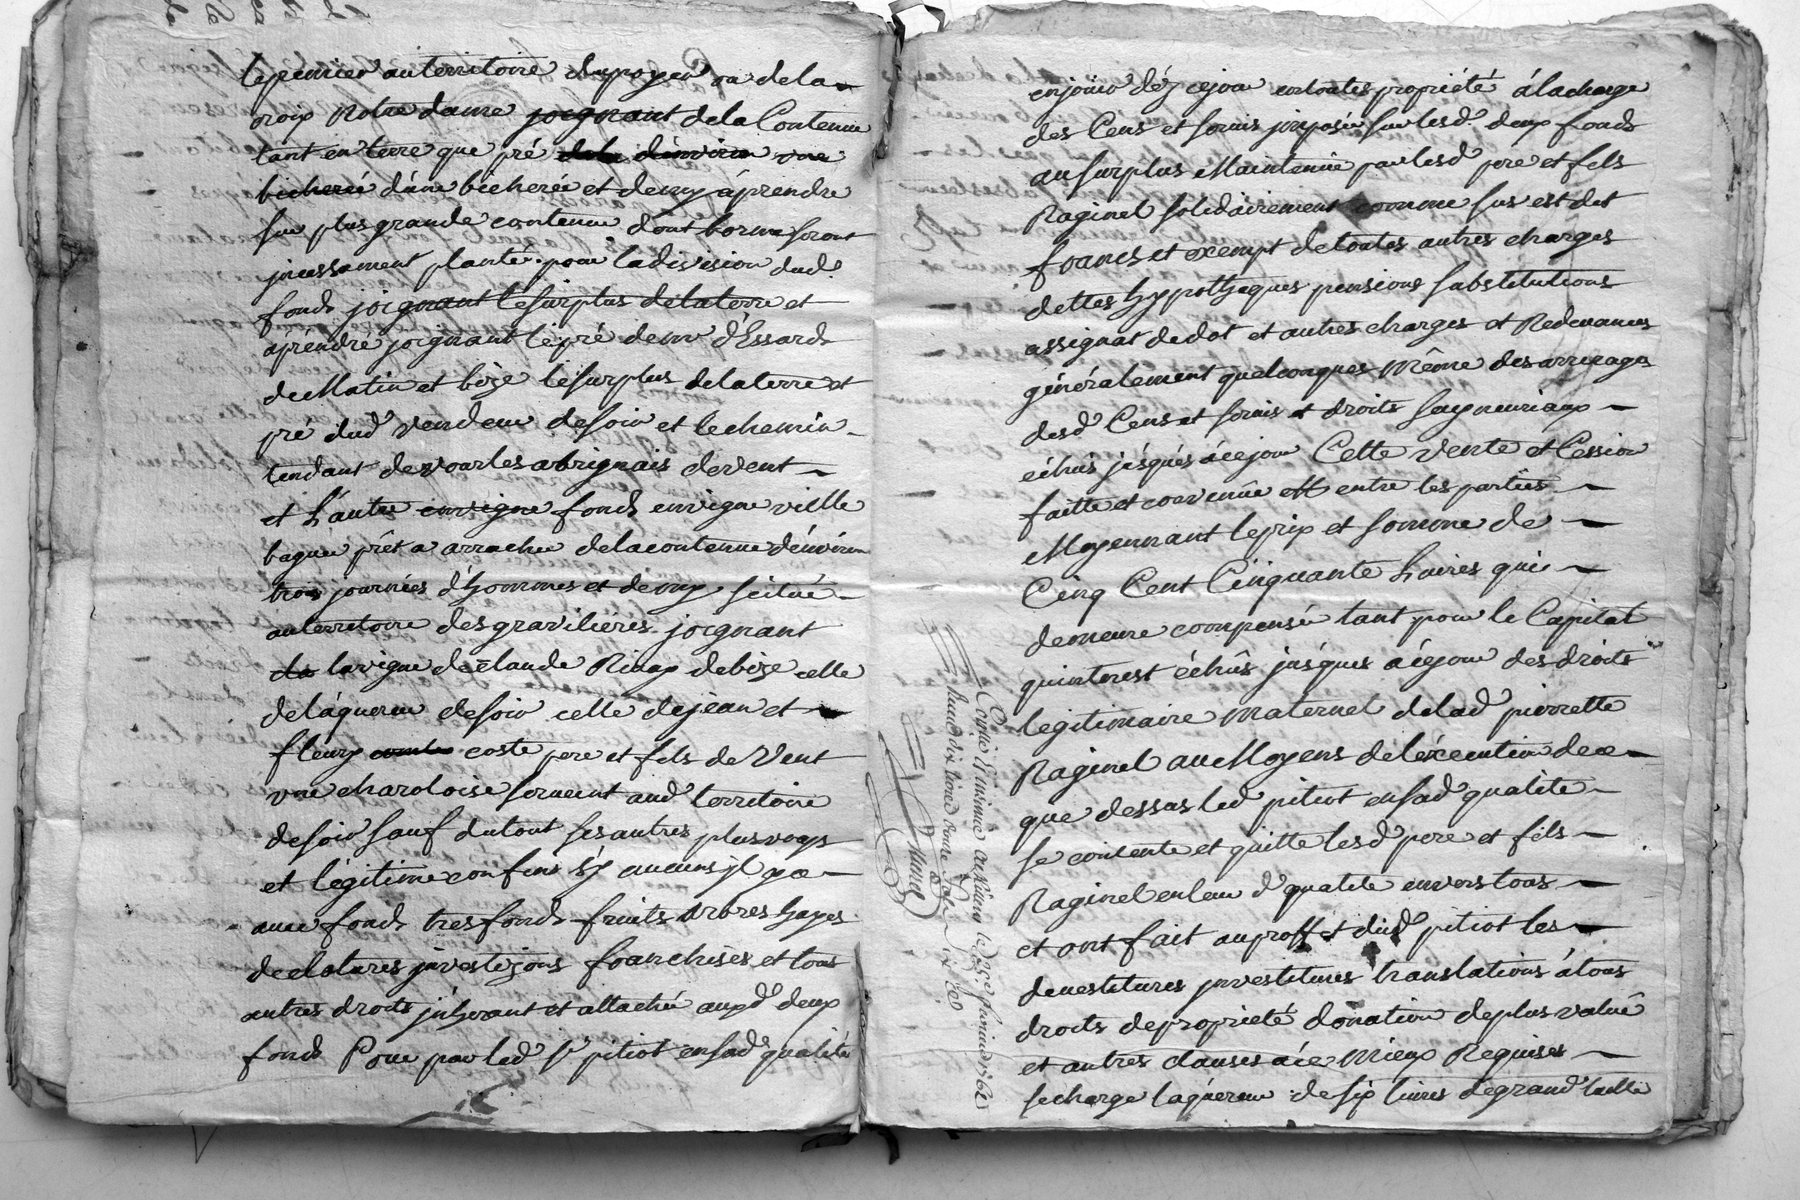 le premier au territoire du poyer ou de la
croix Notre dame joignant de la Contenue
tant en terre que pré dela d'environ une
bicherée d'une bicherée et demy à prendre
sur plus grande contenue dont borne seront
incessament planté pour la division dud
fond joignant le surplus de la terre et
à prendre joignant le pré de mr d'Essards
de Matin et bize le surplus de la terre et
pré dud vendeur de soir et le chemin
tendant de vourles a brignais de vent
et L'autre en vigne fond en vigne vielle
baguer prêt a arracher de la contenue d'environ
trois journées d'hommes et demy scitué
au territoire des gravilières joignant
la la vigne de claude Rivay de bize celle
de l'aquereur de soir celle de jean et
fleury coste pere et fils de Vent
une charoloise servant aud territoire
de soir sauf du tout ses autres plus vrays
et légitime confins s'y aucuns jl y a
avec fonds tresfonds fruits arbres hayes
declotures jnvestizons franchises et tous
autres droits jnherant et attaché auxd deux
fonds Pour par led sr pitiot en sad qualité
en jouir déz ce jour en toutes propriété à la charge
des Cens et servis jmposés sur lesd deux fonds
au surplus Maintenüe par lesd pere et fils
Raginel solidairement comme sus est dit
francs et exempt de toutes autres charges
dettes hypotheques pensions substitutions
assignat de dot et autres charges et Redevances
généralement quelconques Même des arrerages
desd Cens et servis et droits seigneuriaux
échus jusques à ce jour Cette vente et Cession
faitte et convenüe entre les parties
Moyennant le prix et somme de
Cinq Cent Cinquante Livres qui
demeure compensée tant pour le Capital
qu'interest échûs jusques à ce jour des droits
legitimaire maternel de lad pierrette
Raginel au Moyens de l'exécution de ce
que dessus led pitiot en sad qualité
se contente et quitte lesd pere et fils
Raginel en leur d qualité envers tous
et ont fait au proffit dud pitiot les
devestitures jnvestitures translations à tous
droits de proprieté donation de plus valuë
et autres clauses à ce Mieux Requises
se charge l'aquereur de six livres de grand taille
le 25e fevrier 1762